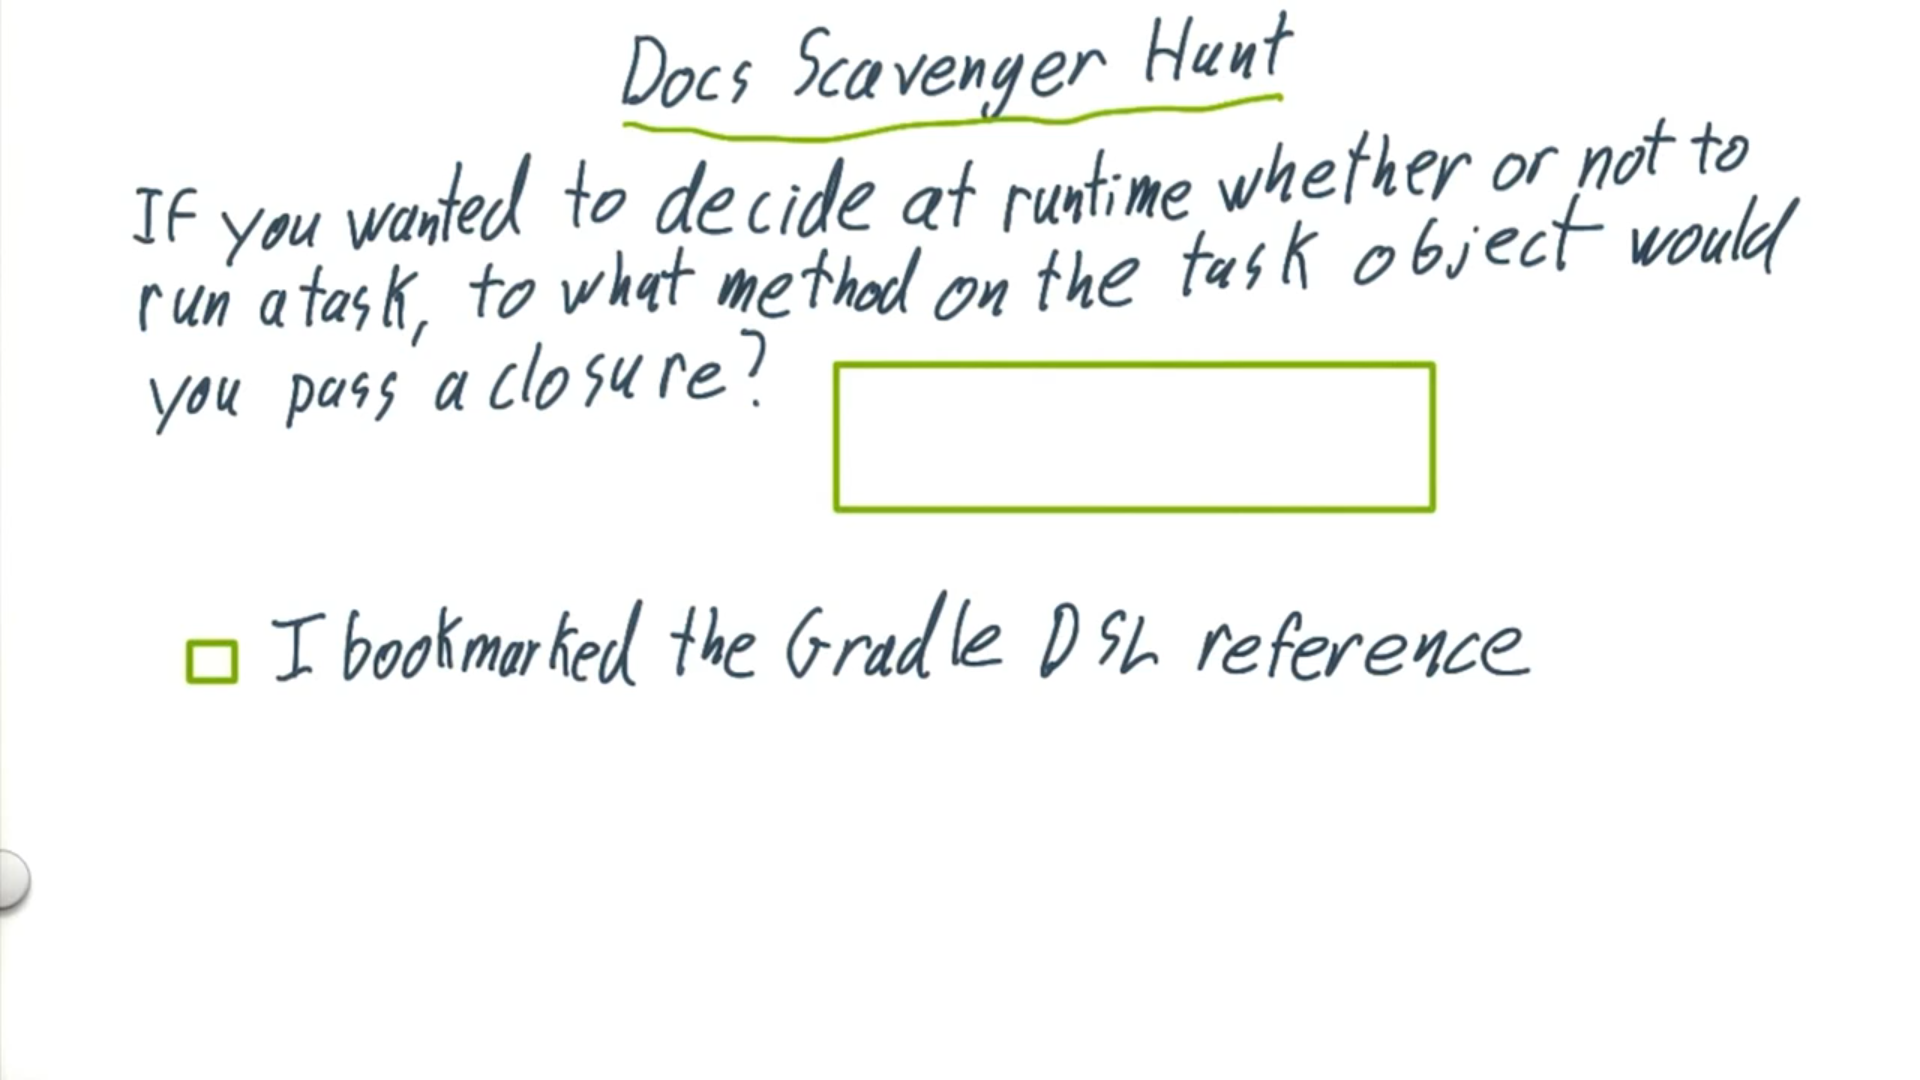 Docs Scavenger Hunt
If you wanted to decide at runtime whether or not to
run a task, to what method on the task object would
you pass a closure?
I bookmarked the Gradle DSL reference